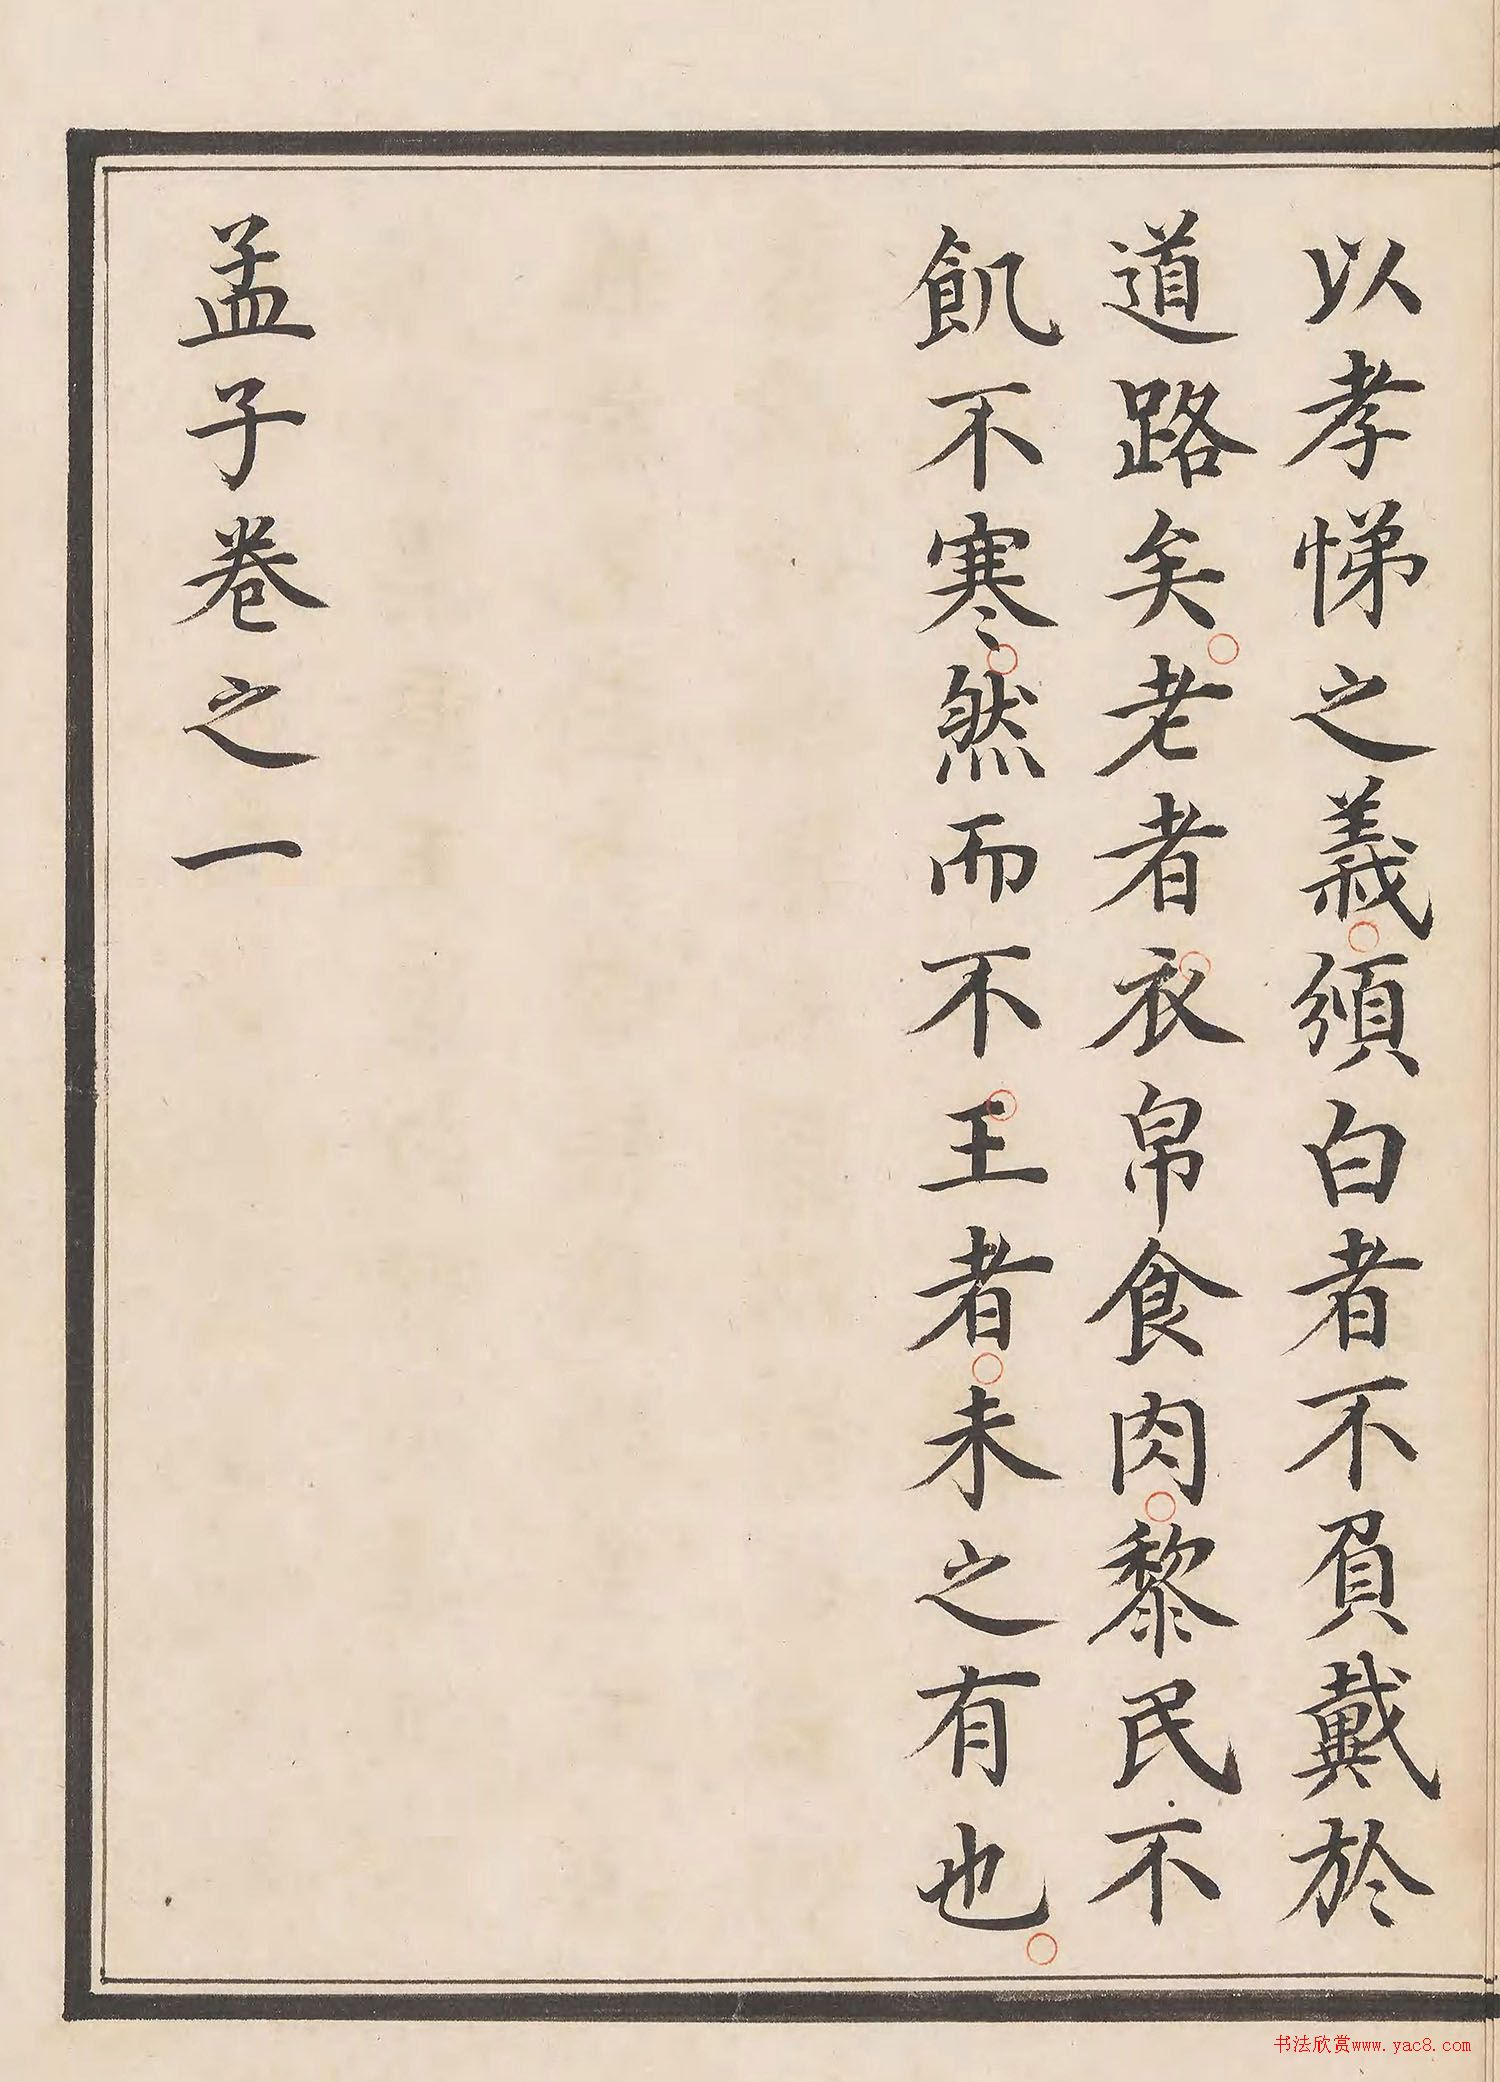 以孝悌之義頒白者不負戴於
道路矣老者衣帛食肉黎民不
飢不寒然而不王者未之有也
孟子卷之一
书法欣赏www.yac8.com